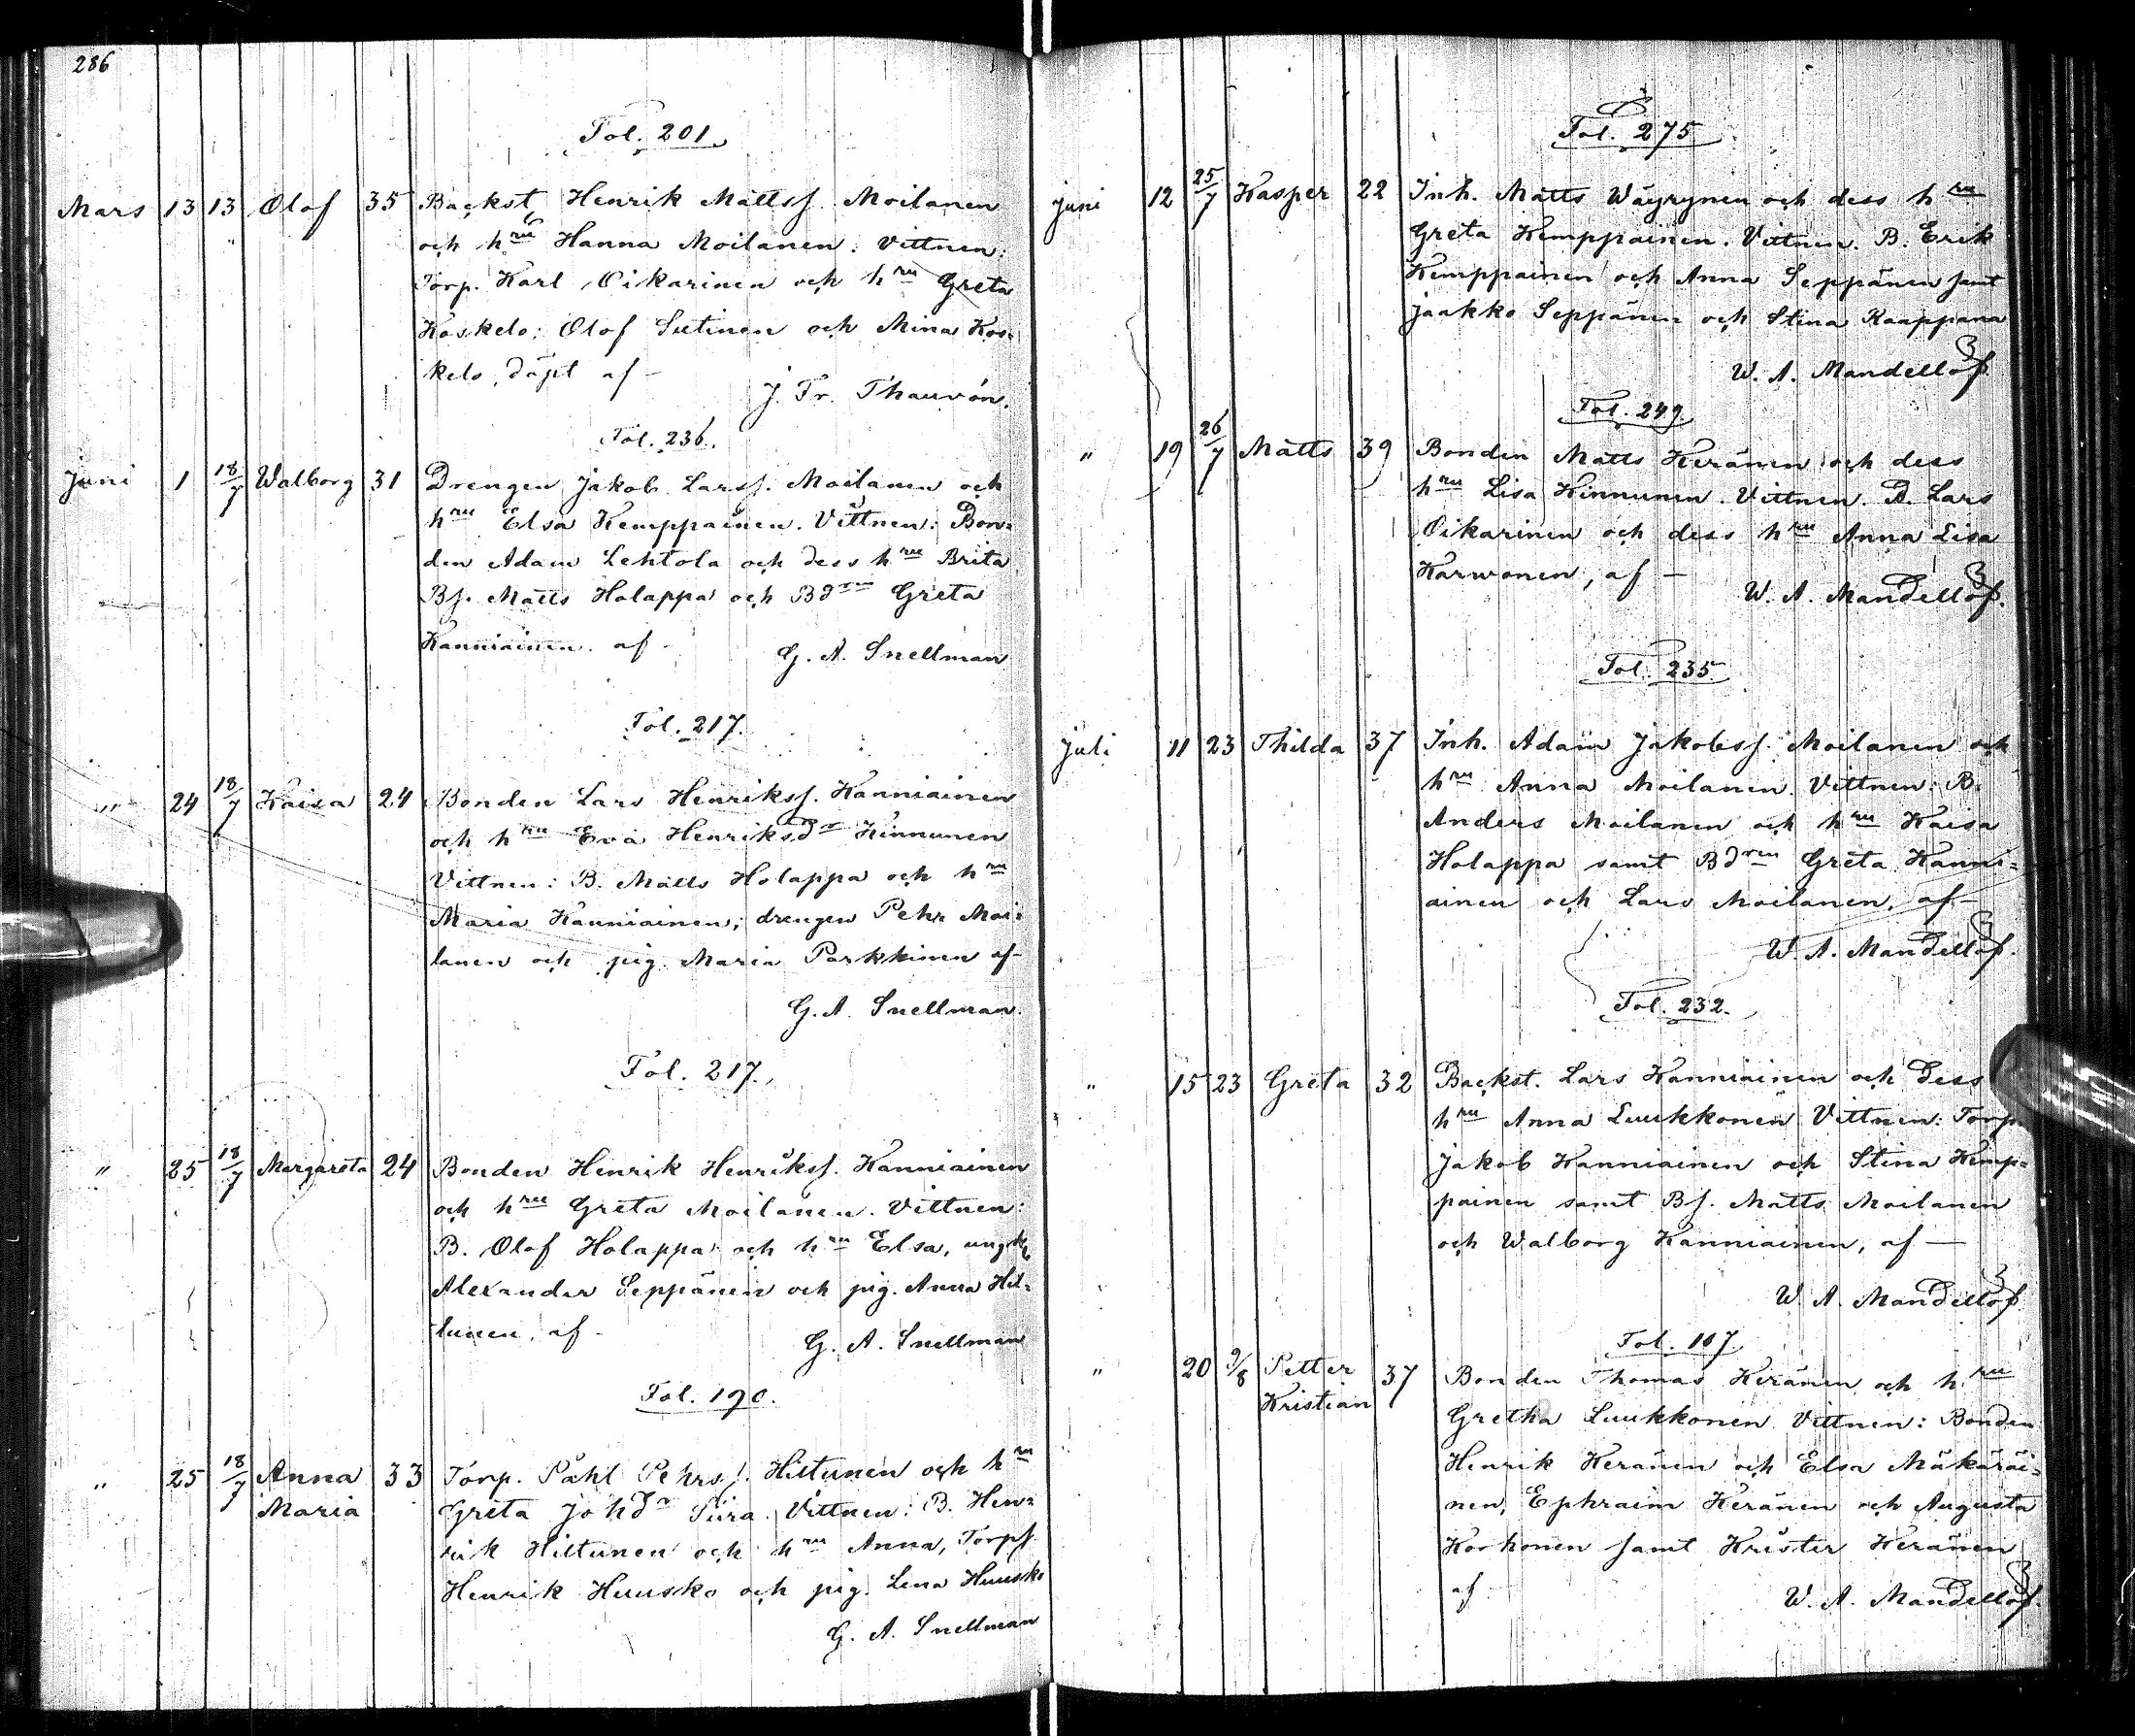 286
Fol. 201
Mars 13 13 Olof 35 Backst Henrik Mattsf. Moilanen
och hru Hanna Moilanen. Vittnen:
Torp. Karl Oikarinen och hru Greta
Koskelo; Olof Sutinen och Mina Kos-
kelo, döpt af –
J. Fr. Thauvón.
Fol. 236.
Juni 1 18/7 Walborg 31 Drengen Jakob Larsf. Moilanen och
hru Elsa Kemppainen. Vittnen: Bon-
den Adam Lehtola och dess hru Brita
Bf. Matts Holappa och Bdren Greta
Kanniainen. af –
G. A. Snellman
Fol. 217.
" 24 18/7 Kaisa 24 Bonden Lars Henriksf. Kanniainen
och hru Eva Henriksdr Kinnunen
Vittnen: B. Matts Holappa och hru
Maria Kanniainen; drengen Pehr Moi-
lanen och pig. Maria Parkkinen af –
G. A. Snellman.
Fol. 217.
" 25 18/7 Margareta 24 Bonden Henrik Henriksf. Kanniainen
och hru Greta Moilanen. Vittnen:
B. Olof Holappa och hru Elsa, ungk
Alexander Seppänen och pig. Anna Hil-
tunen, af –
G. A. Snellman
Fol. 190.
" 25 18/7 Anna 33 Torp. Påhl Pehrsf. Hiltunen och hru
Maria Greta Johdr Siira. Vittnen: B. Hen-
rik Hiltunen och hru Anna, Torpf
Henrik Huusko och pig. Lena Huusko
G. A. Snellman
Fol. 275
Juni 12 25/7 Kasper 22 Inh. Matts Wäyrynen och dess hru
Greta Kemppainen. Vittnen. B. Erik
Kemppainen och Anna Seppänen samt
Jaakko Seppänen och Stina Kaappana
W. A. Mandellöf
Fol. 249
" 19 26/7 Matts 39 Bonden Matts Keränen och dess
hru Lisa Kinnunen. Vittnen. B. Lars
Oikarinen och dess hru Anna Lisa
Karwonen, af –
W. A. Mandellöf.
Fol. 235
Juli 11 23 Thilda 37 Inh. Adam Jakobsf. Moilanen och
hru Anna Moilanen. Vittnen: B.
Anders Moilanen och hru Kaisa
Holappa samt Bdren Greta Kanni-
ainen och Lars Moilanen, af –
W. A. Mandellöf.
Fol. 232.
" 15 23 Greta 32 Backst. Lars Kanniainen och dess
hru Anna Luukkonen Vittnen: Torp
Jakob Kanniainen och Stina Kemp-
painen samt Bf. Matts Moilanen
och Walborg Kanniainen, af –
W. A. Mandellöf
Fol. 107.
" 20 9/8 Petter 37 Bonden Thomas Keränen och hru
Kristian Gretha Luukkonen Vittnen: Bonden
Henrik Keränen och Elsa Mäkäräi-
nen, Ephraim Keränen och Augusta
Korhonen samt Krister Keränen
af –
W. A. Mandellöf.